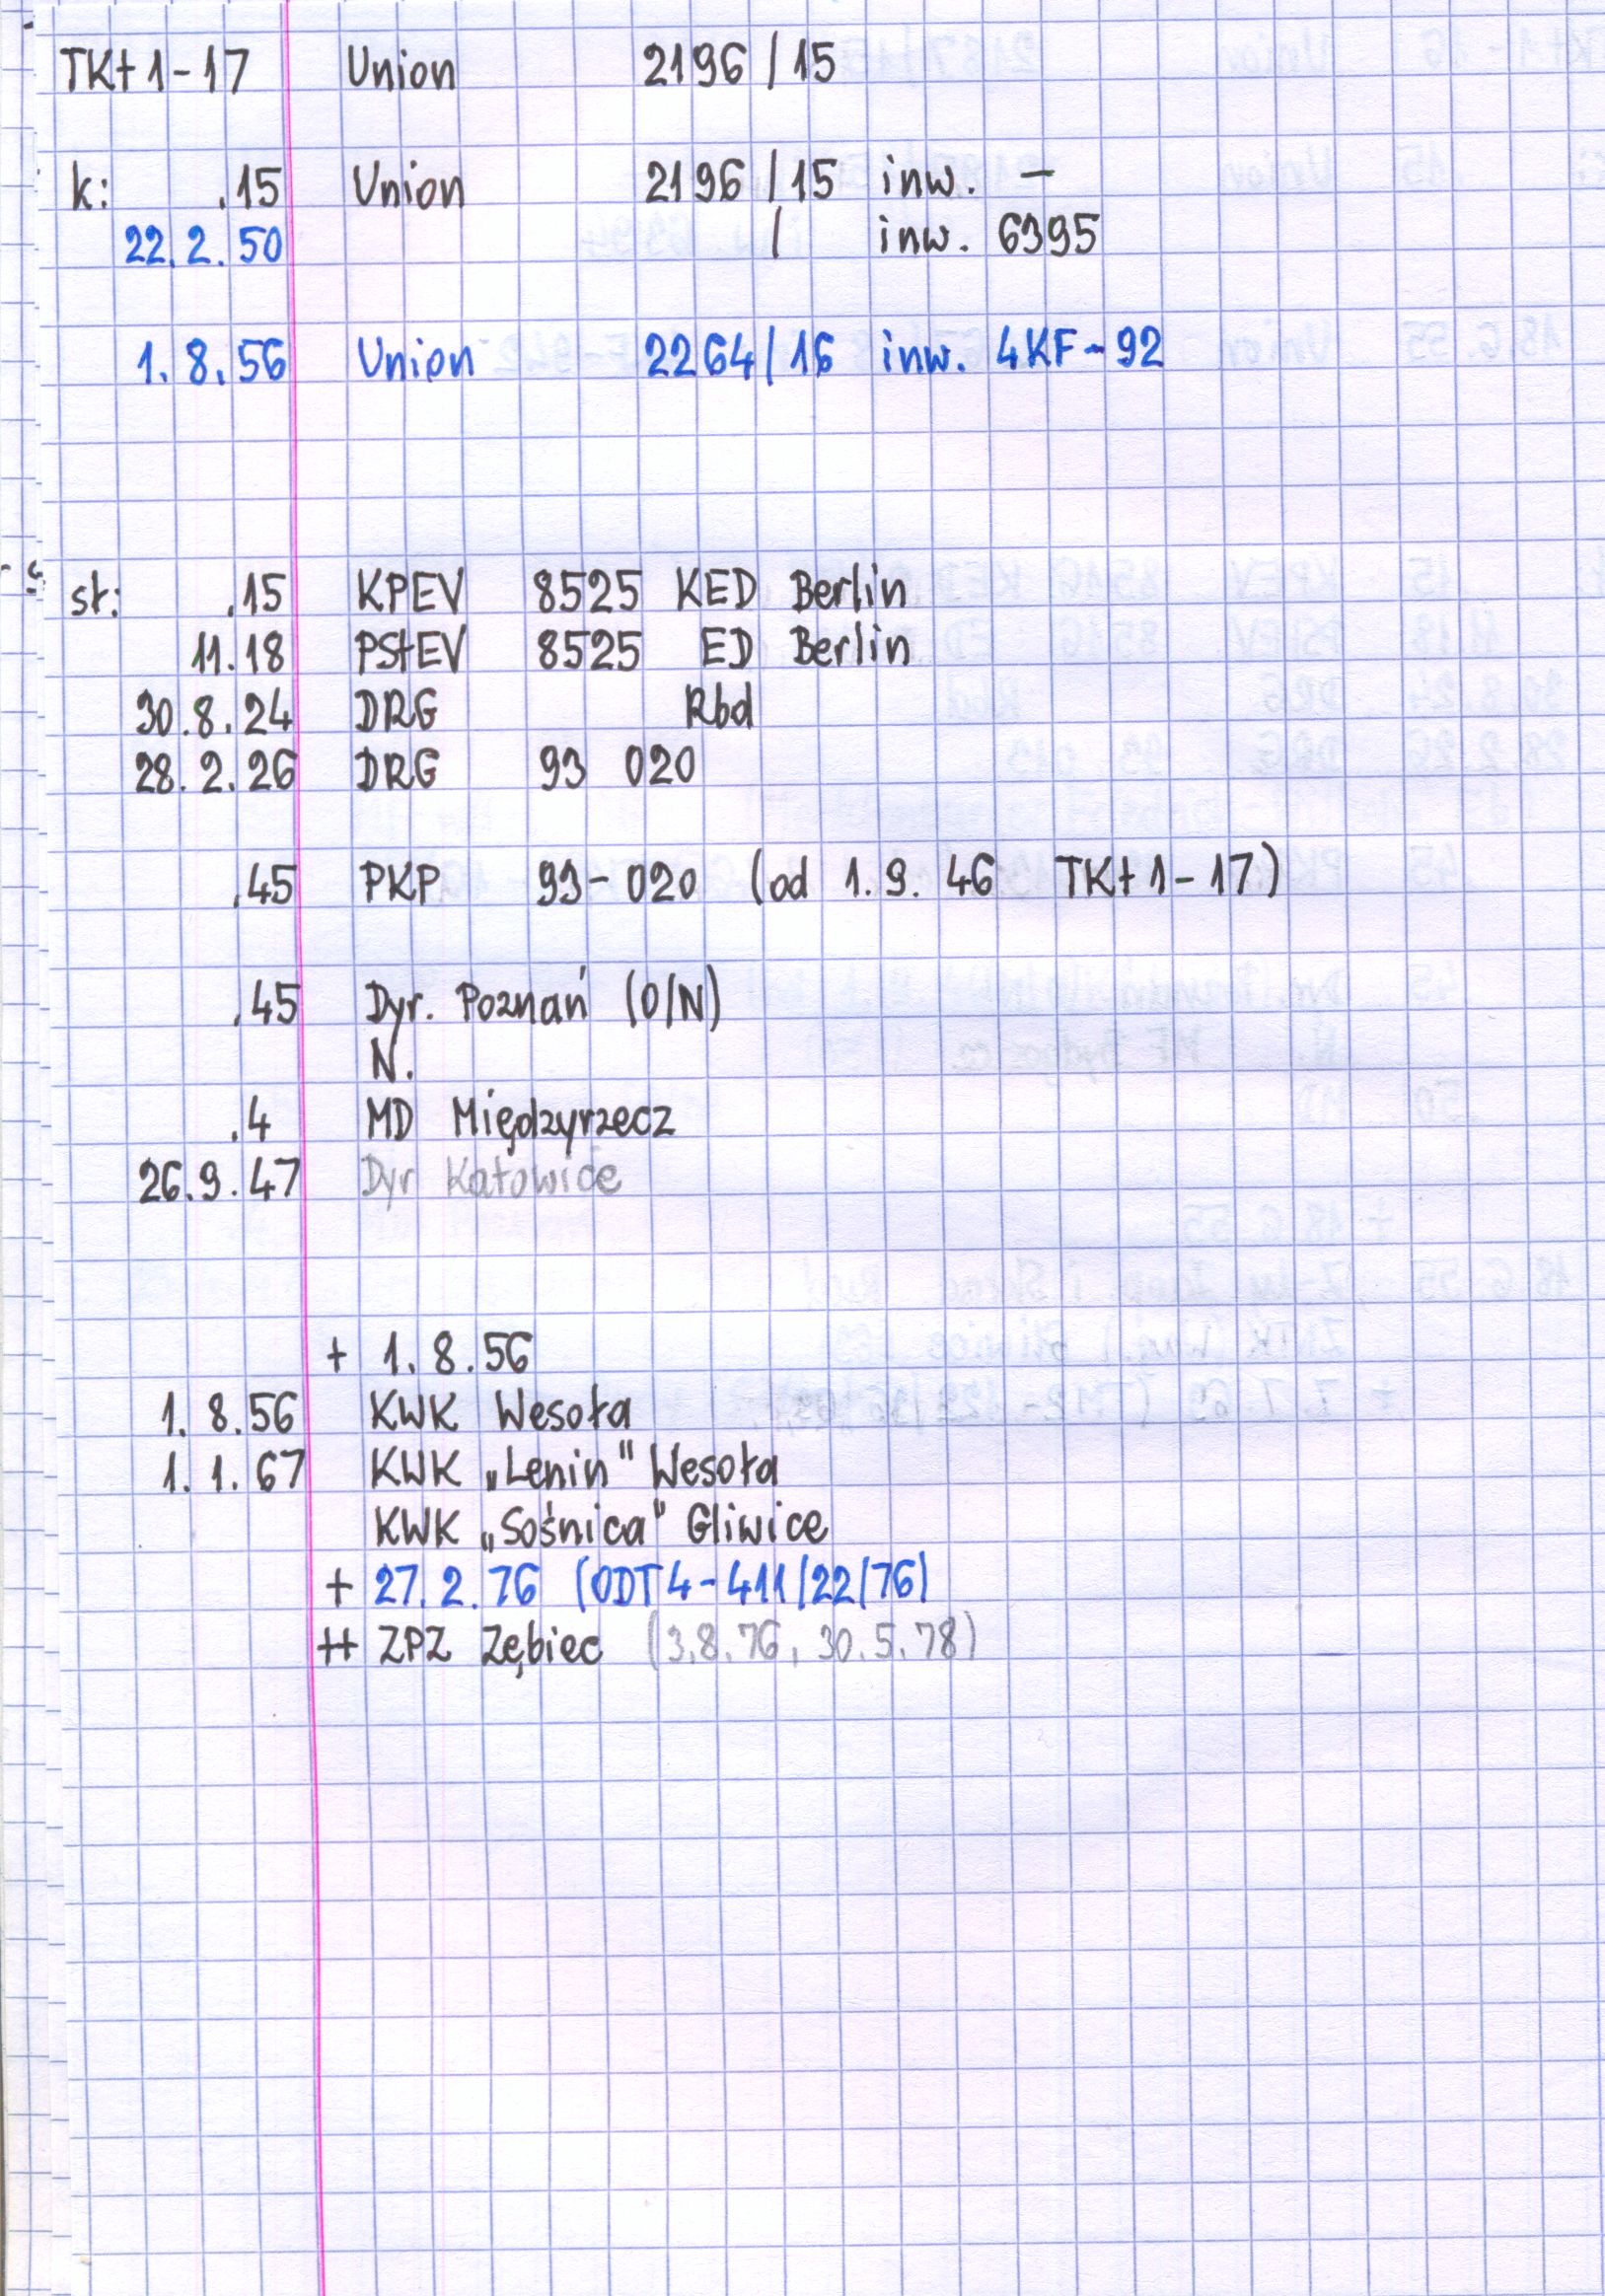 TKt 1-17 Union 2196 / 15
k: .15 Union 2196 / 15 inw. -
22. 2. 50 / inw. 6395
1. 8. 56 Union 2264 / 16 inw. 4KF-92
st: .15 KPEV 8525 KED Berlin
11.18 PStEV 8525 ED Berlin
30.8.24 DRG Rbd
28. 2. 26 DRG 93 020
.45 PKP 93-020 (od 1. 9. 46 TKt 1-17)
.45 Dyr. Poznań (O/N)
N.
.4 MD Międzyrzecz
26.9.47 Dyr Katowice
+ 1. 8. 56
1. 8. 56 KWK Wesoła
1. 1. 67 KWK „Lenin" Wesoła
KWK „Sośnica" Gliwice
+ 27. 2. 76 (ODT4-411/22/76)
++ ZPZ Zębiec (3.8.76, 30.5.78)